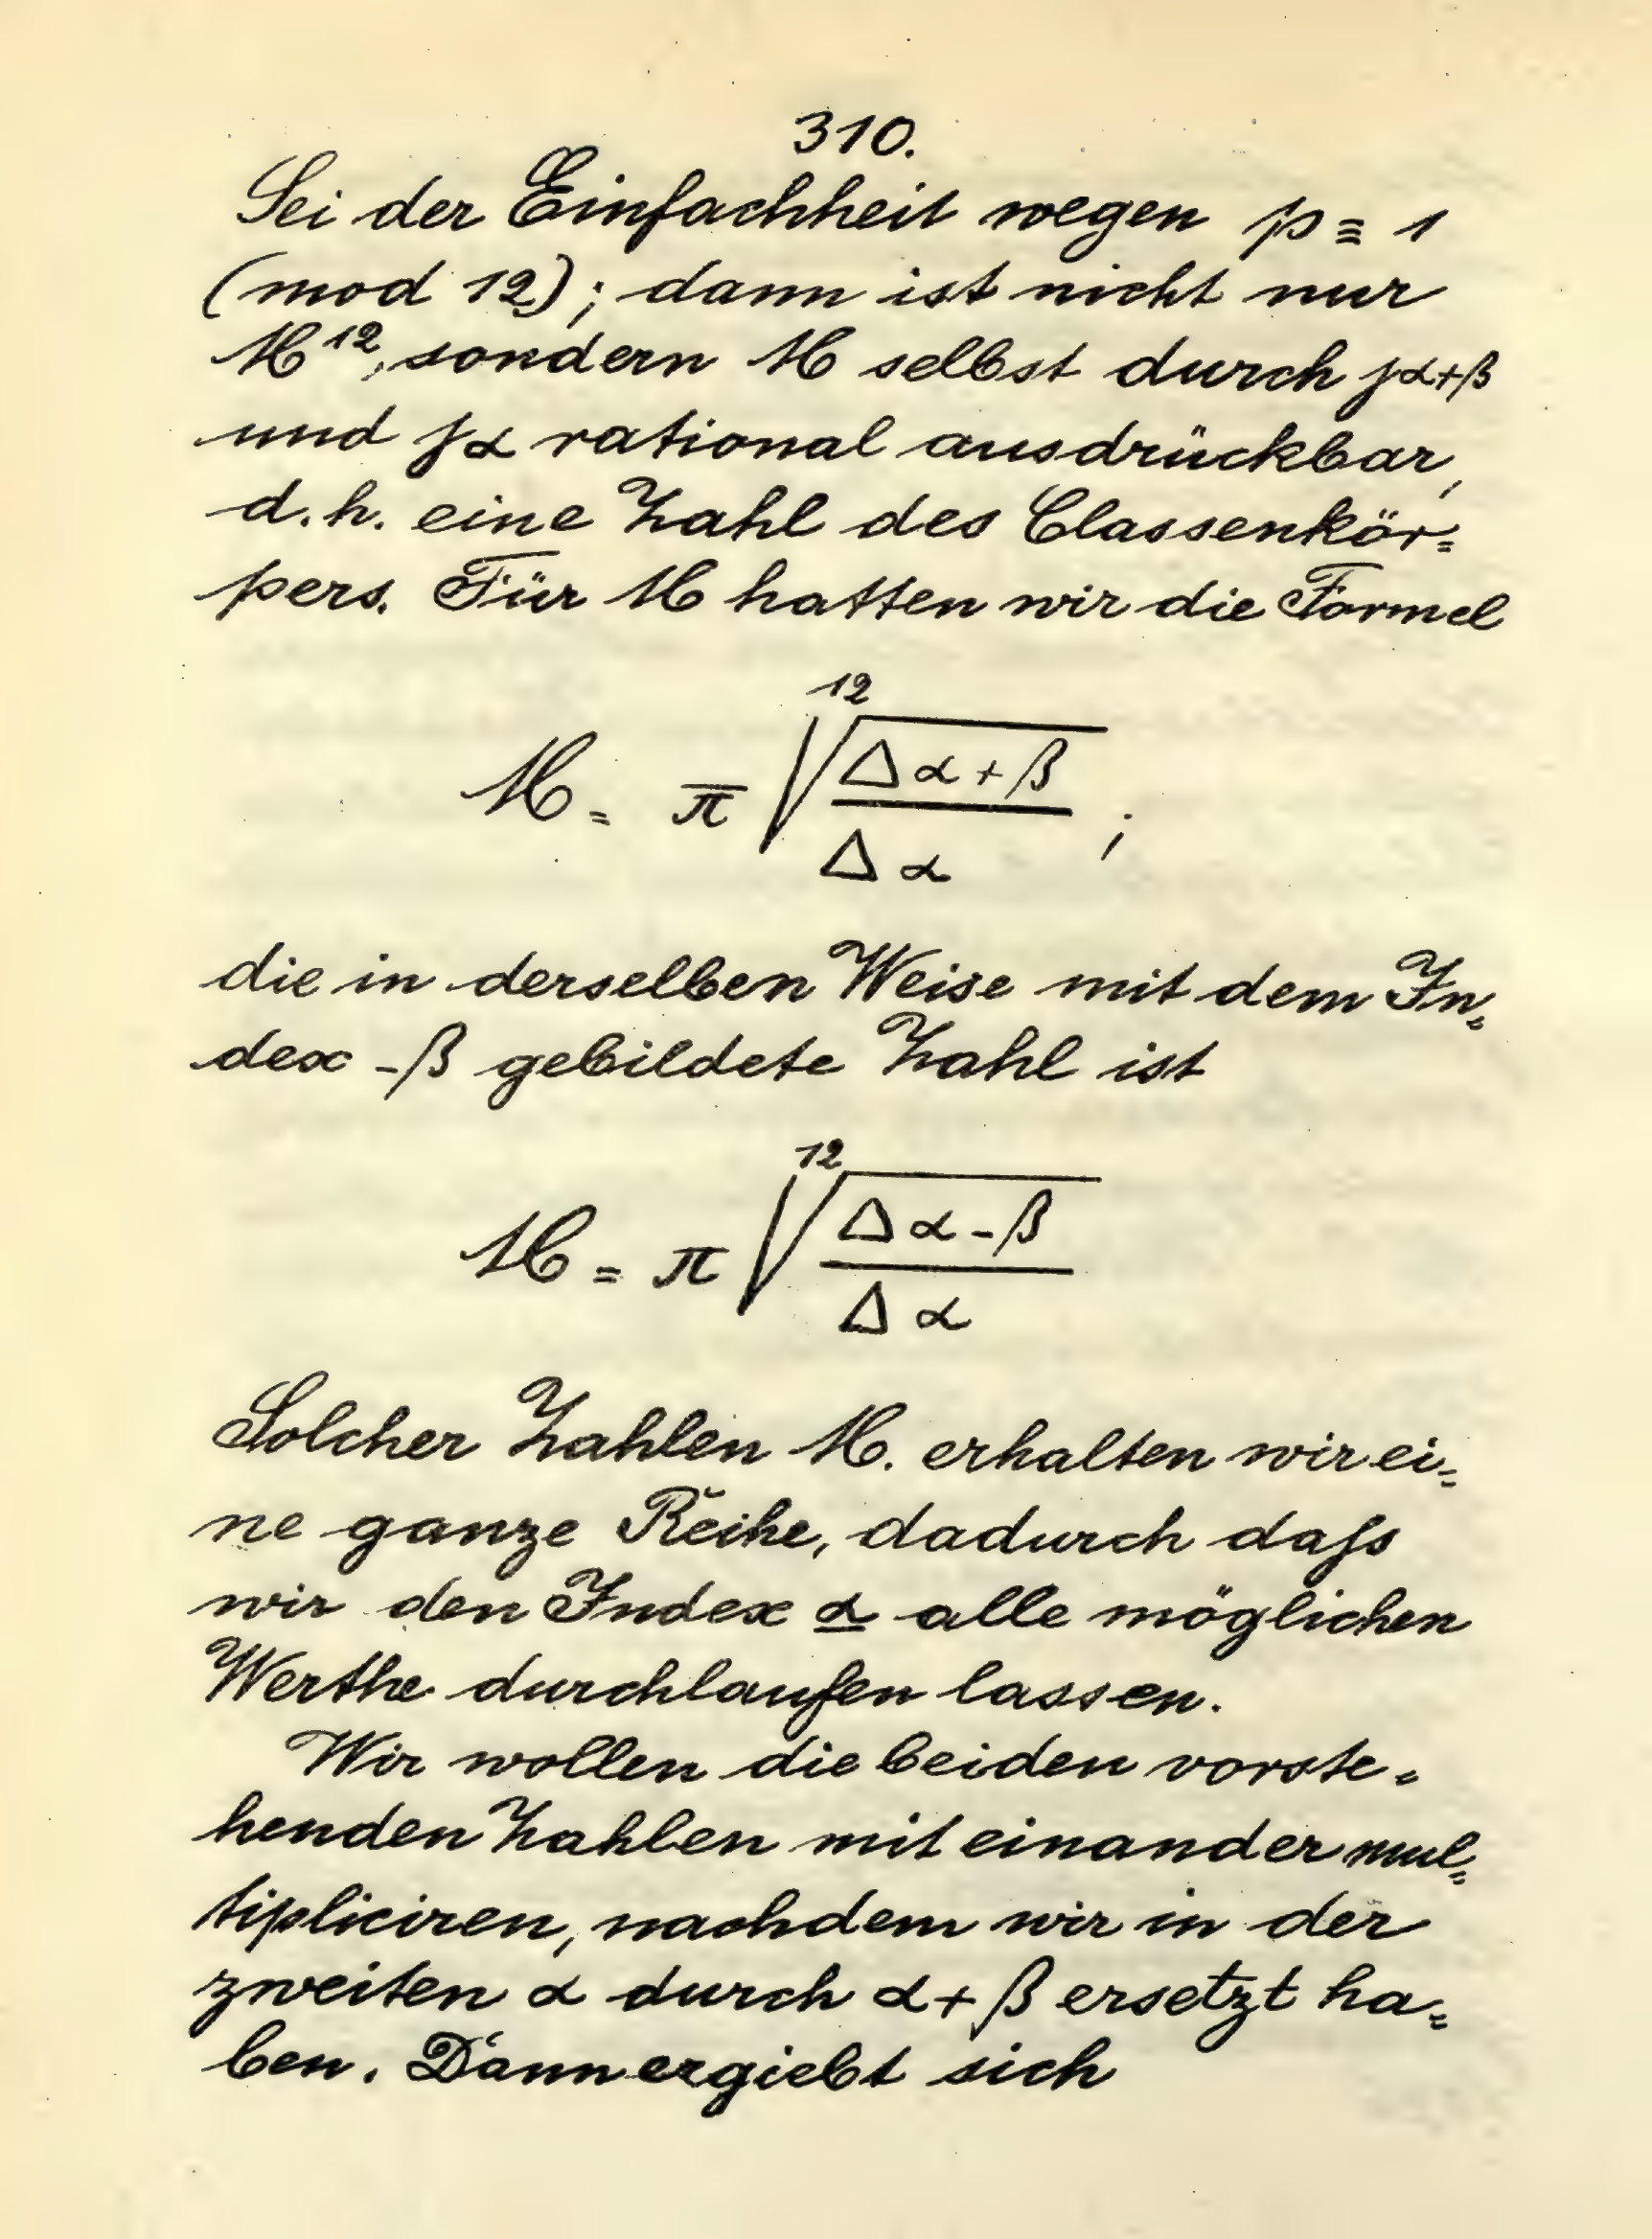 310.
Sei der Einfachheit wegen p ≡ 1
(mod 12); dann ist nicht nur
M¹², sondern M selbst durch jα+β
und jα rational ausdrückbar,
d. h. eine Zahl des Classenkör=
pers. Für M hatten wir die Formel
M = π̅ \sqrt[12]{\frac{Δα+β}{Δα}} ;
die in derselben Weise mit dem In=
dex -β gebildete Zahl ist
M = π \sqrt[12]{\frac{Δα-β}{Δα}}
Solcher Zahlen M. erhalten wir ei=
ne ganze Reihe, dadurch daſs
wir den Index α alle möglichen
Werthe durchlaufen lassen.
Wir wollen die beiden vorste=
henden Zahlen mit einander mul=
tipliciren, nachdem wir in der
zweiten α durch α+β ersetzt ha=
ben. Dann ergiebt sich